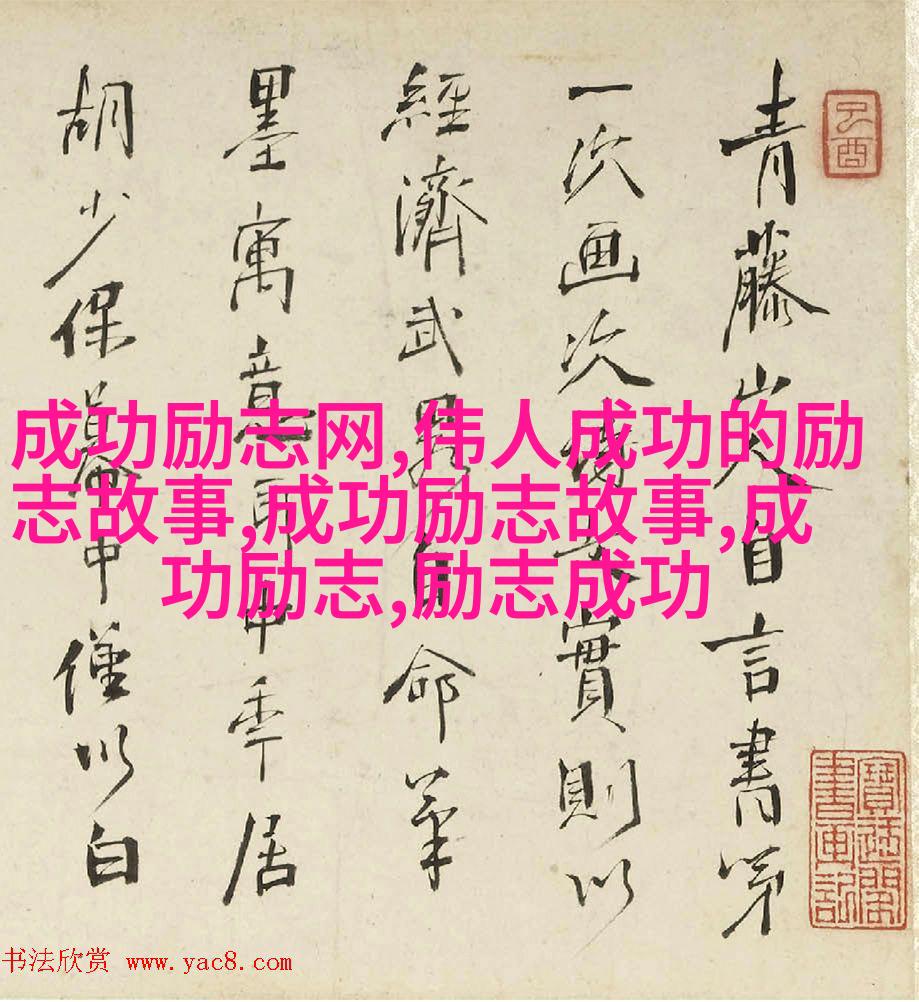 青藤山人自言書第
一次画次
實則以
經濟武
自命筆
墨寓意
中年居
胡少保
中僅以白
成功励志网,伟人成功的励
志故事,成功励志故事,成
功励志,励志成功
己酉
寶迂閣
書畫記
书法欣赏 www.yac8.com